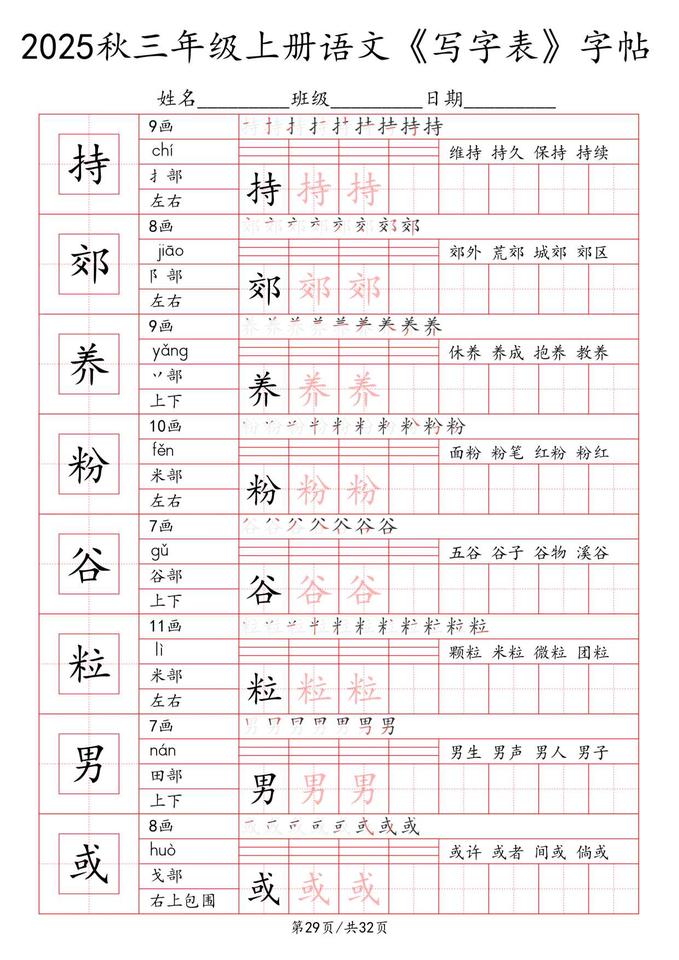 2025秋三年级上册语文《写字表》字帖
姓名_________班级_________日期_________
持
9画
chí
扌部
左右
持
维持 持久 保持 持续
持 持 持
郊
8画
jiāo
阝部
左右
郊
郊外 荒郊 城郊 郊区
郊 郊 郊
养
9画
yǎng
丷部
上下
养
休养 养成 抱养 教养
养 养 养
粉
10画
fěn
米部
左右
粉
面粉 粉笔 红粉 粉红
粉 粉 粉
谷
7画
gǔ
谷部
上下
谷
五谷 谷子 谷物 溪谷
谷 谷 谷
粒
11画
lì
米部
左右
粒
颗粒 米粒 微粒 团粒
粒 粒 粒
男
7画
nán
田部
上下
男
男生 男声 男人 男子
男 男 男
或
8画
huò
戈部
右上包围
或
或许 或者 间或 倘或
或 或 或
第29页/共32页